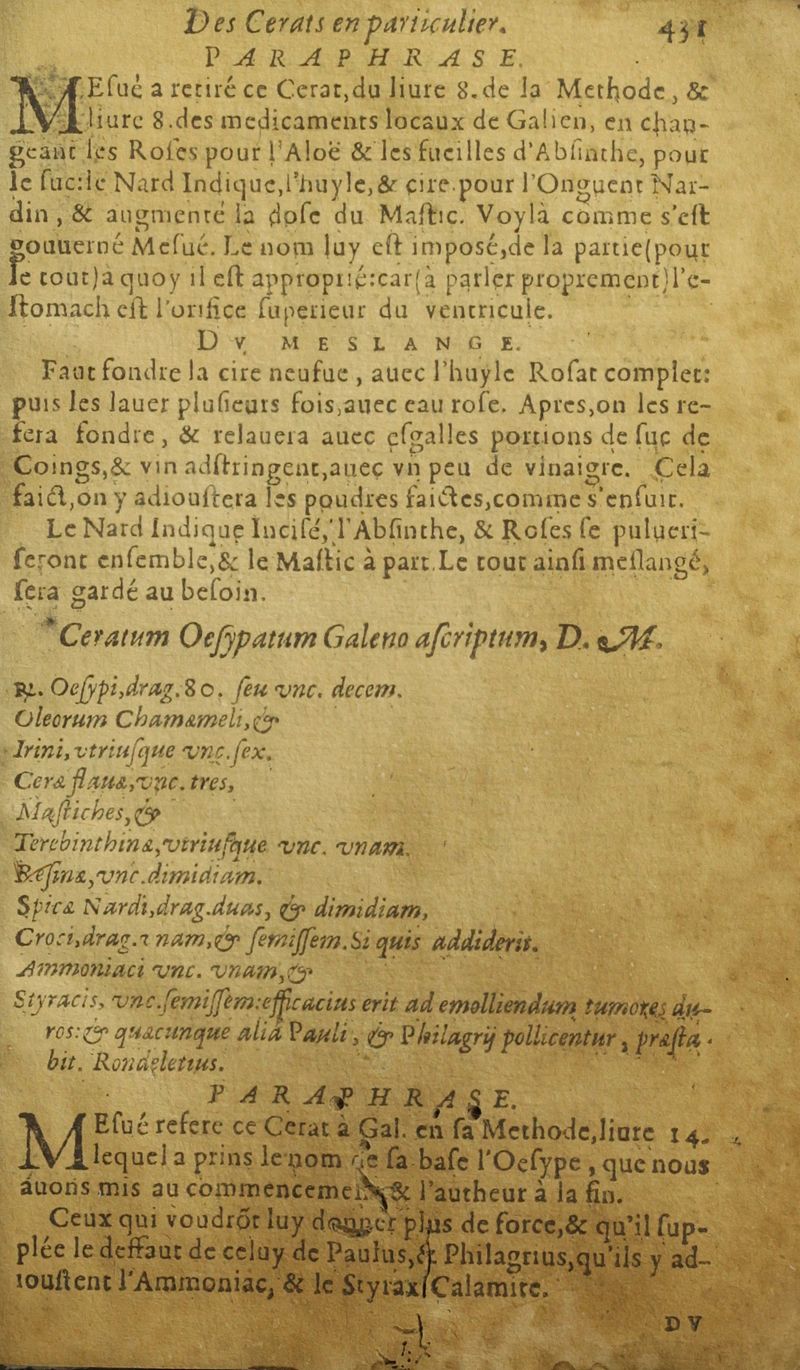 Des Cerats en particulier. 431
PARAPHRASE.
MEſué a retiré ce Cerat,du liure 8.de la Methode, &
liure 8.des medicaments locaux de Galien, en chan-
geant les Roſes pour l'Aloë & les fueilles d'Abſinthe, pour
le ſuc:le Nard Indique,l'huyle,& cire.pour l'Onguent Nar-
din, & augmenté la doſe du Maſtic. Voylà comme s'eſt
gouuerné Meſué. Le nom luy eſt imposé,de la partie(pour
le tout)à quoy il eſt approprié:car(à parler proprement)l'e-
ſtomach eſt l'orifice ſuperieur du ventricule.
DV MESLANGE.
Faut fondre la cire neufue, auec l'huyle Roſat complet:
puis les lauer pluſieurs fois,auec eau roſe. Apres,on les re-
fera fondre, & relauera auec eſgalles portions de ſuc de
Coings,& vin adſtringent,auec vn peu de vinaigre. Cela
faict,on y adiouſtera les poudres faictes,comme s'enſuit.
Le Nard Indique Inciſé,l'Abſinthe, & Roſes ſe pulueri-
ſeront enſemble,& le Maſtic à part.Le tout ainſi meſlangé,
ſera gardé au beſoin.
*Ceratum Oeſypatum Galeno aſcriptum, D. M.
℞. Oeſypi,drag.80. ſeu vnc. decem.
Oleorum Chamæmeli,&
Irini,vtriuſque vnc.ſex.
Ceræ flauæ,vnc. tres,
Maſtiches,&
Terebinthinæ,vtriuſque vnc. vnam.
Reſinæ,vnc.dimidiam.
Spicæ Nardi,drag.duas, & dimidiam,
Croci,drag.vnam,& ſemiſſem.Si quis addiderit.
Ammoniaci vnc. vnam,&
Styracis, vnc.ſemiſſem:efficacius erit ad emolliendum tumores du-
ros:& quæcunque alia Pauli, & Philagrij pollicentur, præſta-
bit. Rondeletius.
PARAPHRASE.
MEſué refere ce Cerat à Gal. en ſa Methode,liure 14.
lequel a prins le nom de ſa baſe l'Oeſype, que nous
auons mis au commencement & l'autheur à la fin.
Ceux qui voudrõt luy donner plus de force,& qu'il ſup-
plée le deffaut de celuy de Paulus,& Philagrius,qu'ils y ad-
iouſtent l'Ammoniac, & le Styrax Calamite.
DV